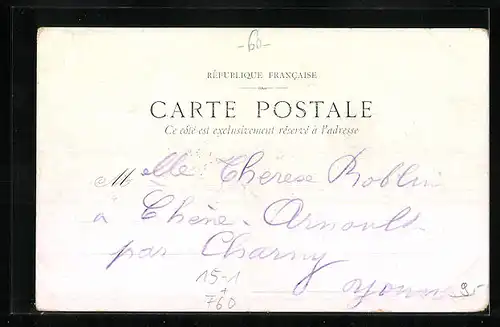 -60-
RÉPUBLIQUE FRANÇAISE
CARTE POSTALE
Ce côté est exclusivement réservé à l'adresse
Melle Thérèse Roblin
à Chêne-Arnoult
par Charny
15-1
760
Yonne
95